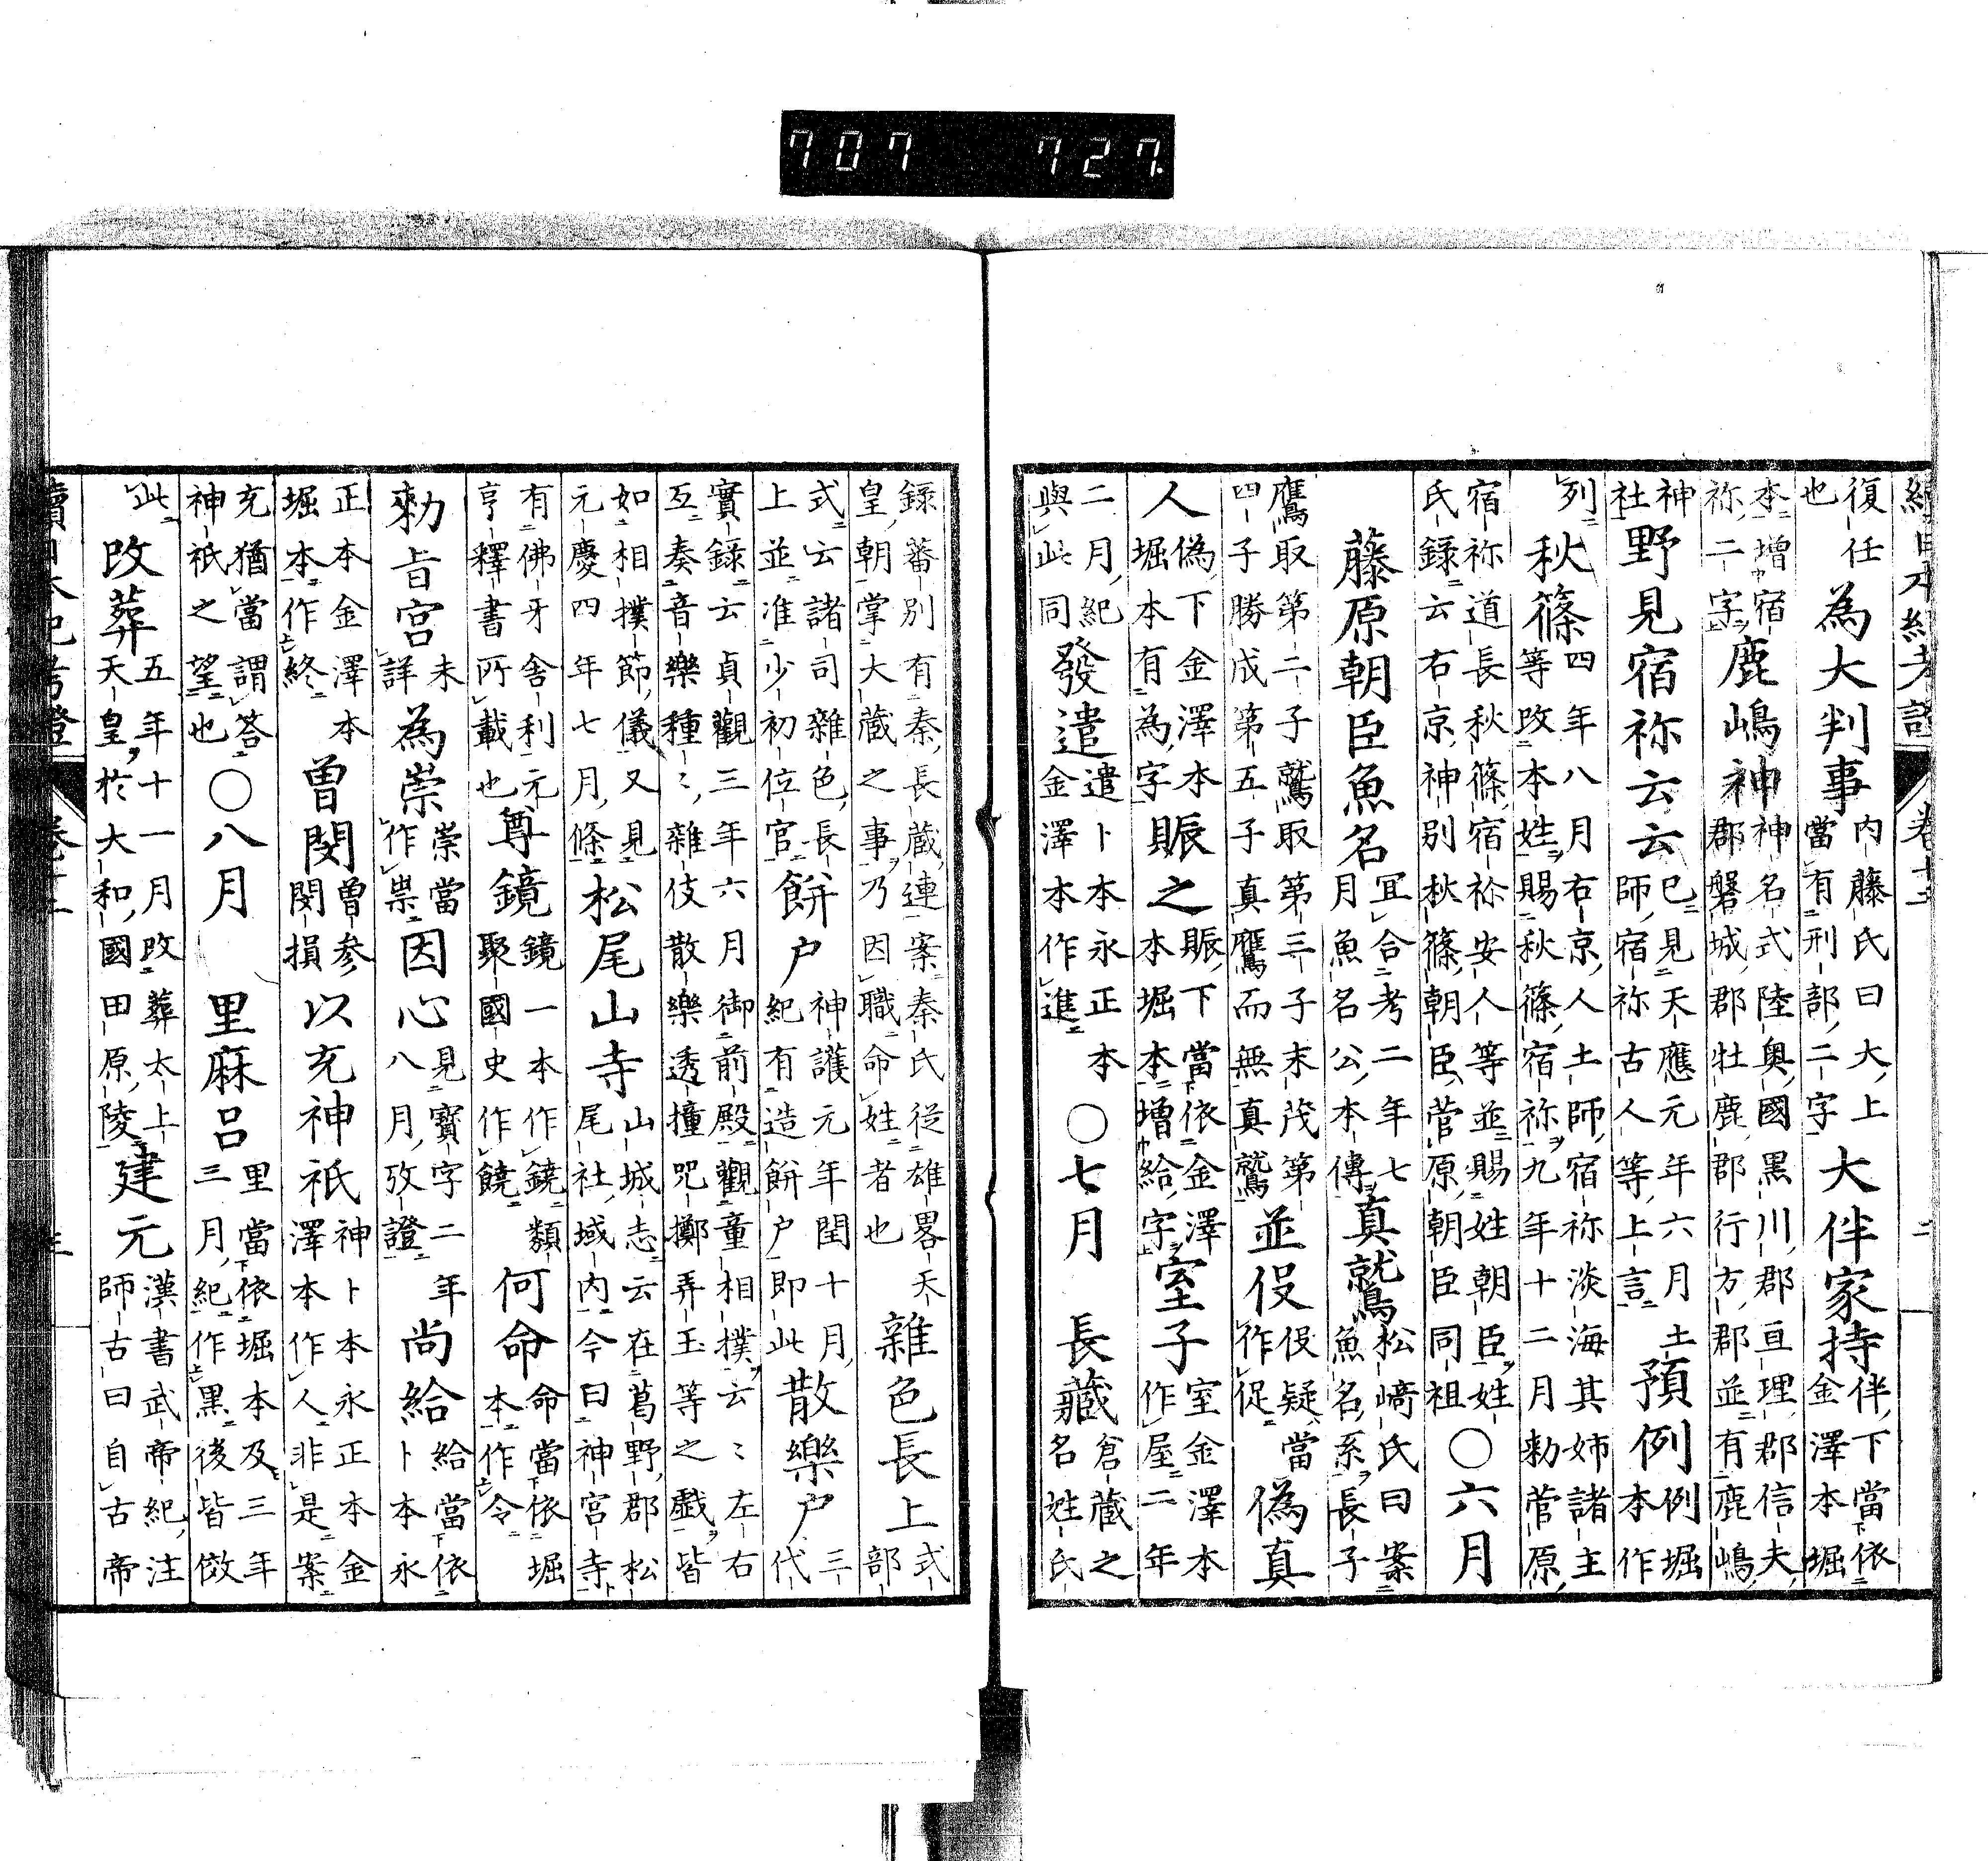 707 727
續日本紀考證 卷十二 二
復任也為大判事內藤氏曰大上當有刑部二字大伴家持伴下當依金澤本堀
本增宿祢二字鹿嶋神神名式陸奧國黑川郡亘理郡信夫郡磐城郡牡鹿郡行方郡並有鹿嶋
神社野見宿祢云云已見天應元年六月土師宿祢古人等上言預例例堀本作
列秋篠四年八月右京人土師宿祢淡海其姉諸主等改本姓賜秋篠宿祢九年十二月勅菅原
宿祢道長秋篠宿祢安人等並賜姓朝臣姓氏錄云右京神別秋篠朝臣菅原朝臣同祖〇六月
藤原朝臣魚名冝合考二年七月魚名公本傳真鷲松﨑氏曰案魚名系長子
鷹取第二子鷲取第三子末茂第四子勝成第五子真鷹而無真鷲並伇伇疑當作促偽真
人偽下金澤本堀本有為字賑之賑下當依金澤本堀本增給字室子室金澤本作屋二年
二月紀與此同發遣遣卜本永正本金澤本作進〇七月長藏倉藏之名姓氏
錄蕃別有秦長藏連案秦氏從雄畧天皇朝掌大藏之事乃因職命姓者也雜色長上式部
式云諸司雜色長上並准少初位官餅戶神護元年閏十月紀有造餅戶即此散樂戶三代
實錄云貞觀三年六月御前殿觀童相撲云〻左右互奏音樂種〻雜伎散樂透撞咒擲弄玉等之戲皆
如相撲節儀又見元慶四年七月條松尾山寺山城志云在葛野郡松尾社域內今曰神宮寺
有佛牙舍利元亨釋書所載也尊鏡鏡一本作鐃類聚國史作饒何命命當依堀本作令
勅旨宮未詳為崇崇當作祟因心見寶字二年八月攷證尚給給當依卜本永
正本金澤本堀本作終曾閔曾參閔損以充神祇神卜本永正本金澤本作人非是案
充猶當謂答神祇之望也〇八月里麻呂里當依堀本及三年三月紀作黑後皆倣
此改葬五年十一月改葬太上天皇於大和國田原陵建元漢書武帝紀注師古曰自古帝
續日本紀考證 卷十二 三